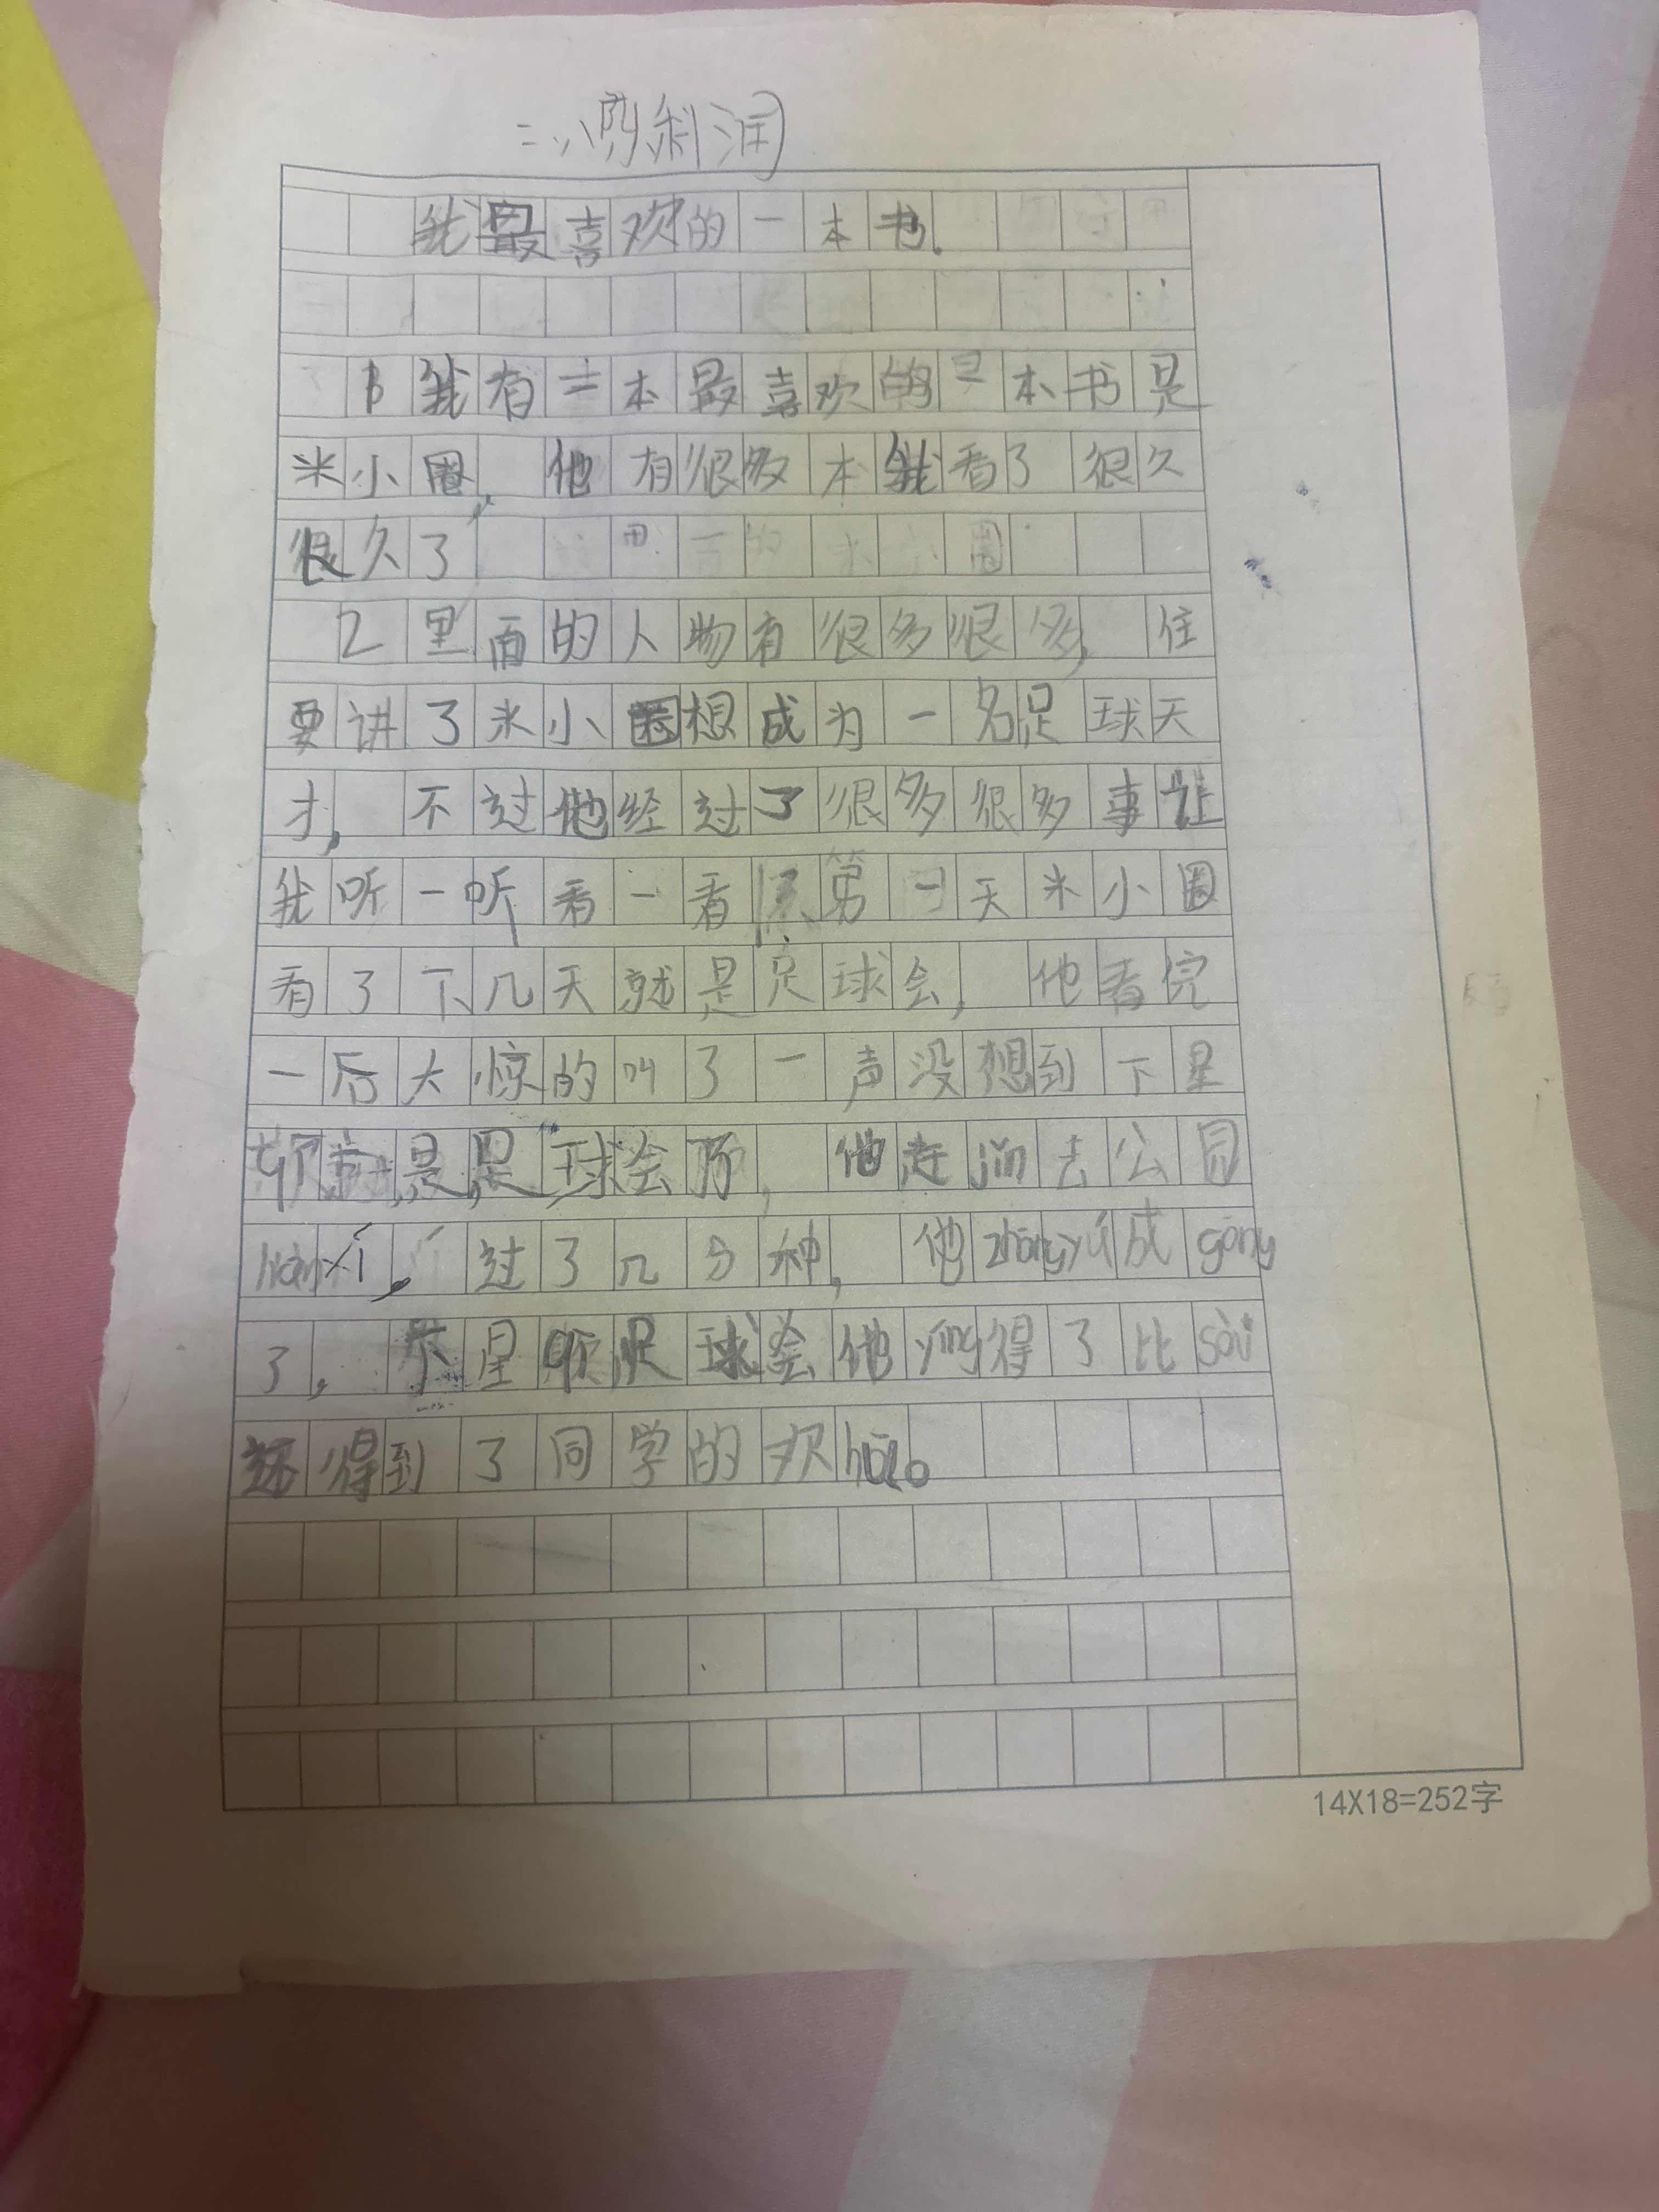 我最喜欢的一本书。
我有一本最喜欢的一本书是
米小圈，他有很多本我看了很久
很久了
2里面的人物有很多很多，住
要讲了米小圈想成为一名足球天
才，不过他经过了很多很多事让
我听一听看一看第一天米小圈
看了下几天就是足球会，他看完
一后大惊的叫了一声没想到下星
就是是球会了，他赶jin去公园
liànxí，过了几分种，他zhōngyú成gōng
了，下星期足球会他yíng得了比sài
还得到了同学的欢hū。
14X18=252字